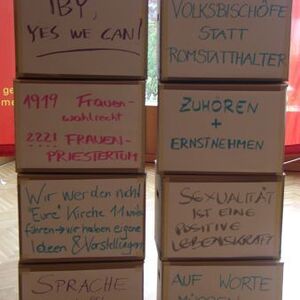 IBY,
YES WE CAN!
1919 Frauen-
wahlrecht
2221 FRAUEN-
PRIESTERTUM
Wir werden nicht
"Eure" Kirche 1:1 weiter
führen → wir haben eigene
Ideen & Vorstellungen
SPRACHE
VOLKSBISCHÖFE
STATT
ROMSTATTHALTER
ZUHÖREN
+
ERNSTNEHMEN
SEXUALITÄT
IST EINE
POSITIVE
LEBENSKRAFT
AUF WORTE